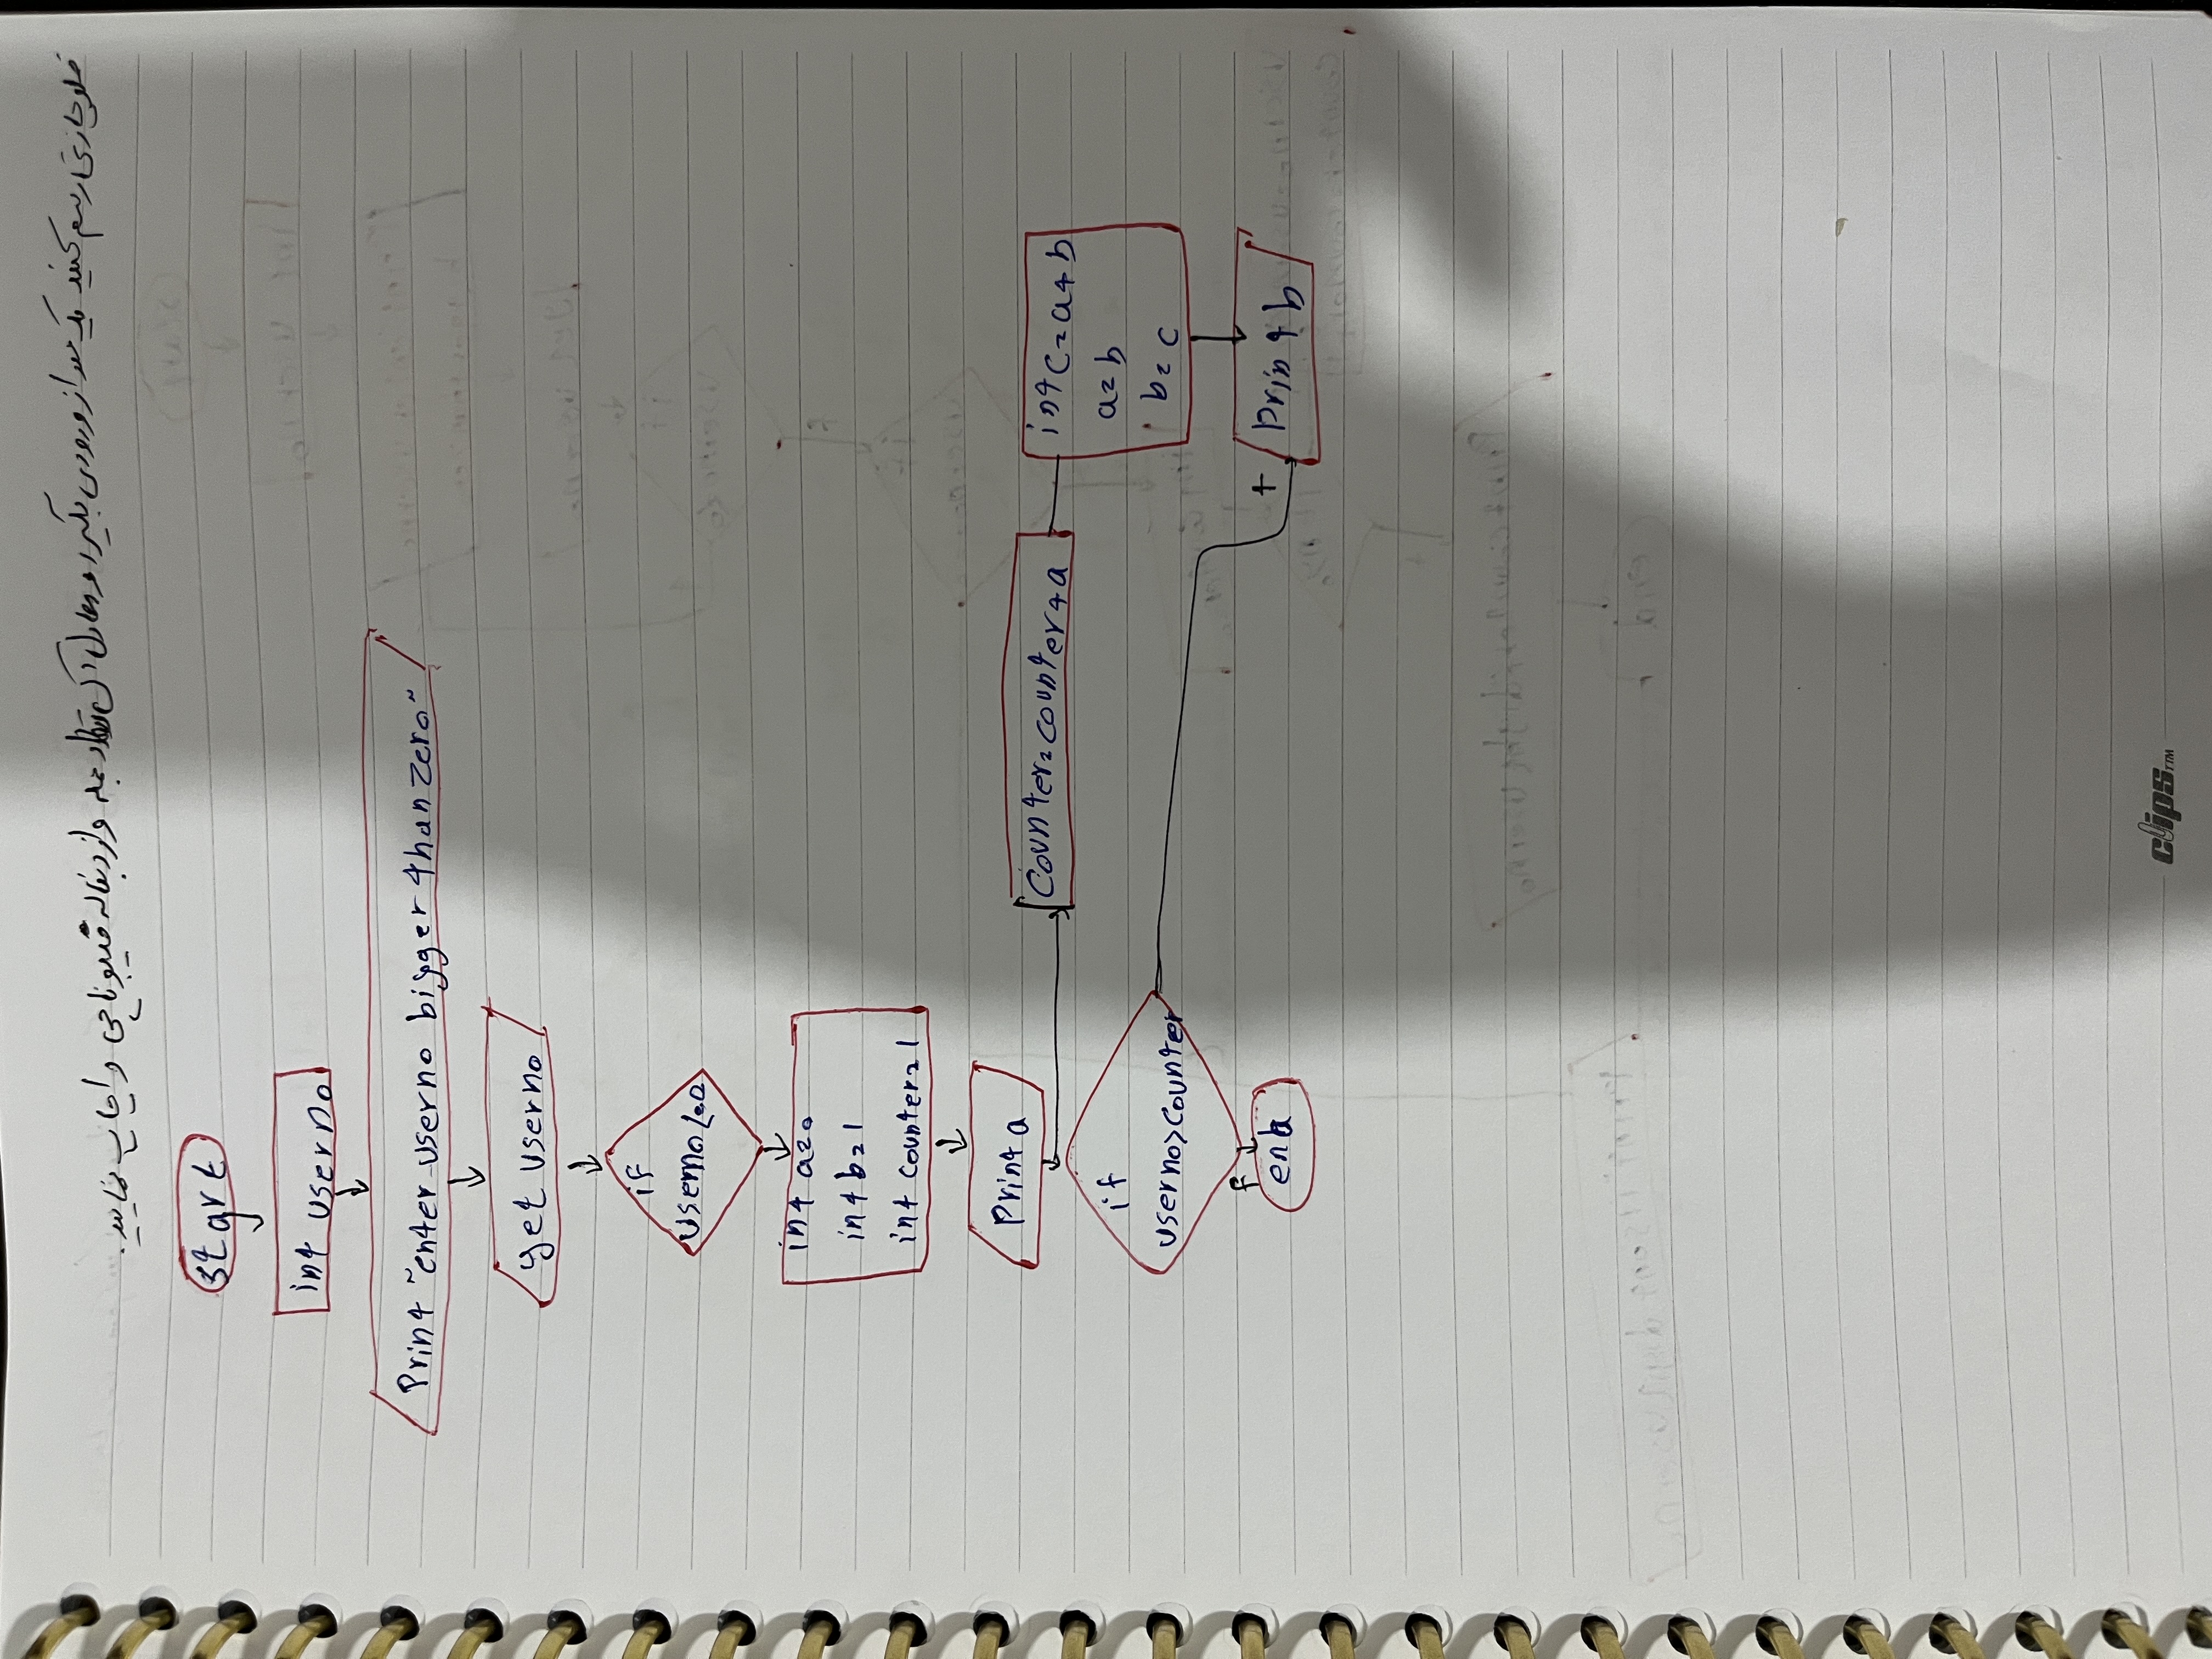 فلوچارتی رسم کنید یک عدد از ورودی بگیرد و معادل آن تعداد جمله را از دنباله فیبوناچی را چاپ نمایید.
start
int userno
Print "enter userno bigger than zero"
get userno
if
userno<=0
int a=0
int b=1
int counter=1
print a
counter=counter+a
int c=a+b
a=b
b=c
if
userno>counter
t
print b
f
end
clips TM